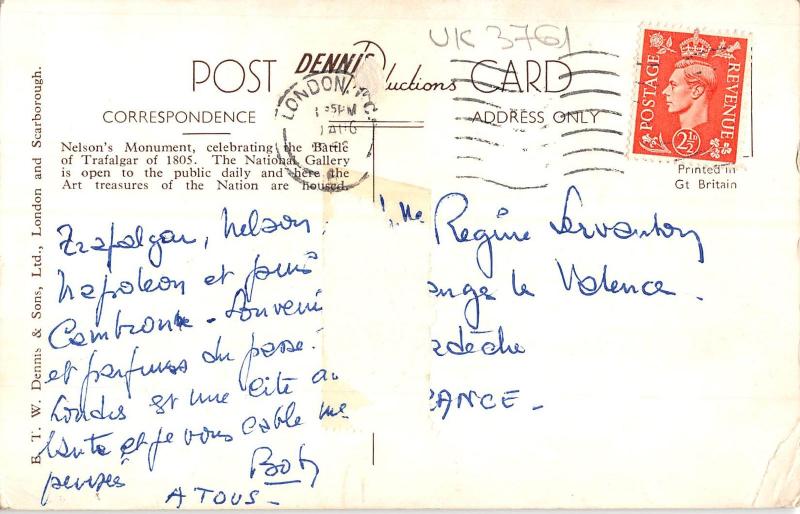 UK 3761
POST DENNIS Productions CARD
POSTAGE REVENUE
2½D
LONDON
PM
AUG
CORRESPONDENCE
ADDRESS ONLY
Printed in
Gt Britain
Nelson's Monument, celebrating the Battle
of Trafalgar of 1805. The National Gallery
is open to the public daily and here the
Art treasures of the Nation are housed.
E. T. W. Dennis & Sons, Ltd., London and Scarborough.
Trafalgar, Nelson,
Napoleon et puis
Cambronne - Souveni
et parfums du passé.
Londres est une cité
et je vous
pensées
Bob
A TOUS -
lle Régine Servanton
anges le Valence.
rdèche
RANCE -